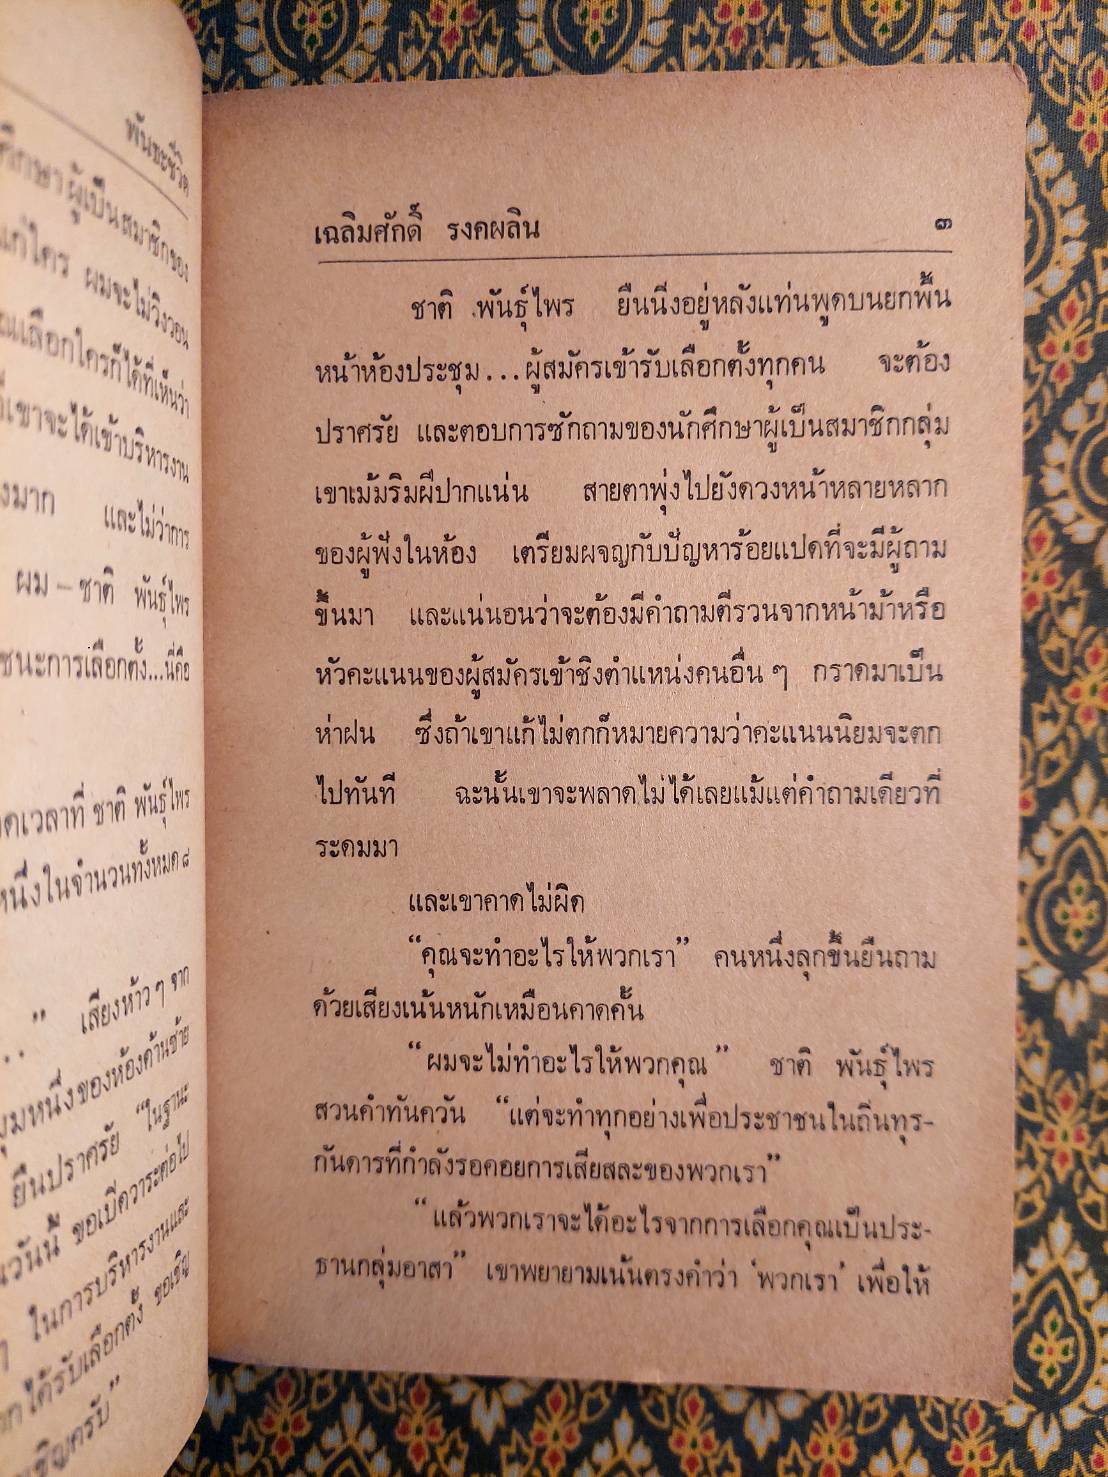 พันธะชีวิต
ศึกษาผู้เป็นสมาชิกของ
แก่ใคร ผมจะไม่วิงวอน
เลือกใครก็ได้ที่เห็นว่า
เขาจะได้เข้าบริหารงาน
มาก และไม่ว่าการ
ผม – ชาติ พันธุ์ไพร
ชนะการเลือกตั้ง...นี่คือ
เวลาที่ ชาติ พันธุ์ไพร
หนึ่งในจำนวนทั้งหมด ๘
..” เสียงห้าว ๆ จาก
มุมหนึ่งของห้องด้านซ้าย
ยืนปราศรัย “ในฐานะ
วันนี้ ขอเปิดวาระต่อไป
ในการบริหารงานและ
ได้รับเลือกตั้ง ขอเชิญ
เชิญครับ”
เฉลิมศักดิ์ รงคผลิน ๓
ชาติ พันธุ์ไพร ยืนนิ่งอยู่หลังแท่นพูดบนยกพื้น
หน้าห้องประชุม...ผู้สมัครเข้ารับเลือกตั้งทุกคน จะต้อง
ปราศรัย และตอบการซักถามของนักศึกษาผู้เป็นสมาชิกกลุ่ม
เขาเม้มริมฝีปากแน่น สายตาพุ่งไปยังดวงหน้าหลายหลาก
ของผู้ฟังในห้อง เตรียมผจญกับปัญหาร้อยแปดที่จะมีผู้ถาม
ขึ้นมา และแน่นอนว่าจะต้องมีคำถามตีรวนจากหน้าม้าหรือ
หัวคะแนนของผู้สมัครเข้าชิงตำแหน่งคนอื่น ๆ กราดมาเป็น
ห่าฝน ซึ่งถ้าเขาแก้ไม่ตกก็หมายความว่าคะแนนนิยมจะตก
ไปทันที ฉะนั้นเขาจะพลาดไม่ได้เลยแม้แต่คำถามเดียวที่
ระดมมา
และเขาคาดไม่ผิด
“คุณจะทำอะไรให้พวกเรา” คนหนึ่งลุกขึ้นยืนถาม
ด้วยเสียงเน้นหนักเหมือนคาดคั้น
“ผมจะไม่ทำอะไรให้พวกคุณ” ชาติ พันธุ์ไพร
สวนคำทันควัน “แต่จะทำทุกอย่างเพื่อประชาชนในถิ่นทุร-
กันดารที่กำลังรอคอยการเสียสละของพวกเรา”
“แล้วพวกเราจะได้อะไรจากการเลือกคุณเป็นประ-
ธานกลุ่มอาสา” เขาพยายามเน้นตรงคำว่า ‘พวกเรา’ เพื่อให้